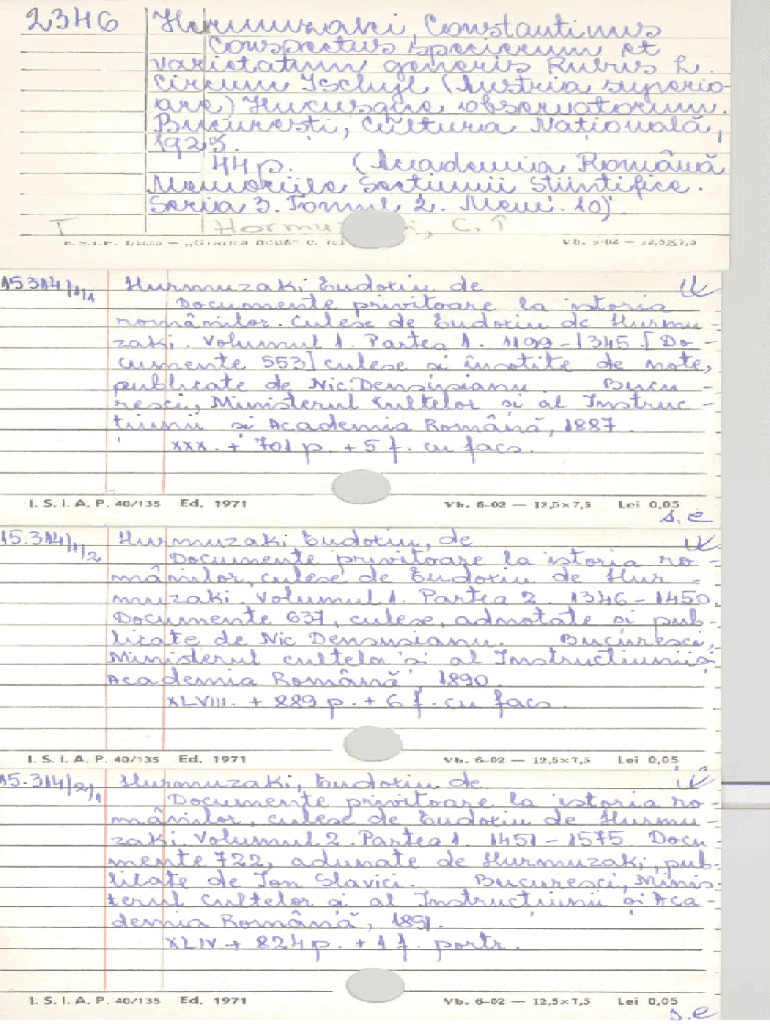 2346 Hormuzaki, Constantinus
Conspectus specierum et
varietatum generis Rubus L.
circum Ischyl (Austria superio-
are) Hucusque observatorum.
Bucuresti, Cultura Natională,
1925.
44 p. (Academia Română
Memoriile Sectiunii Stiintifice.
Seria 3. Tomul 2. Mem. 10).
I C. I
Vb. 6-02 — 12,5x7,5
15.314/1/1 Hurmuzaki Eudoxiu de
Documente privitoare la istoria
românilor. Culese de Eudoxiu de Hurmu-
zaki. Volumul 1. Partea 1. 1199-1345. [Do-
cumente 553] culese si însotite de note,
publicate de Nic. Densusianu. Bucu-
resci, Ministerul Cultelor si al Instruc-
tiunii si Academia Română, 1887.
XXX. + 701 p. + 5 f. cu facs.
I. S. I. A. P. 40/135 Ed. 1971 Vb. 6-02 — 12,5×7,5 Lei 0,05
s.e
15.314/1/2 Hurmuzaki Eudoxiu, de
Documente privitoare la istoria ro-
mânilor, culese de Eudoxiu de Hur-
muzaki. Volumul 1. Partea 2. 1346-1450.
Documente 637, culese, adnotate si pub-
licate de Nic Densusianu. Bucuresci,
Ministerul cultelor si al Instructiunii si
Academia Română, 1890.
XLVIII. + 889 p. + 6 f. cu facs.
I. S. I. A. P. 40/135 Ed. 1971 Vb. 6-02 — 12,5×7,5 Lei 0,05
15.314/2/1 Hurmuzaki, Eudoxiu de
Documente privitoare la istoria ro-
mânilor, culese de Eudoxiu de Hurmu-
zaki. Volumul 2. Partea 1. 1451-1575. Docu-
mente 722, adunate de Hurmuzaki, pub-
licate de Ion Slavici. Bucuresci, Minis-
terul Cultelor si al Instructiunii si Aca-
demia Română, 1891.
XLIV + 824 p. + 1 f. portr.
I. S. I. A. P. 40/135 Ed. 1971 Vb. 6-02 — 12,5×7,5 Lei 0,05
s.e